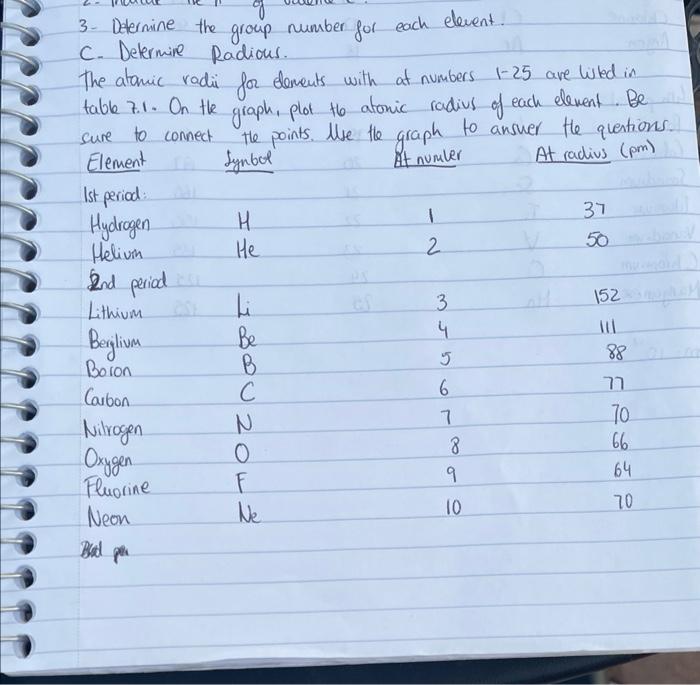 3- Determine the group number for each element.
C- Determine Radious.
The atomic radii for elements with at numbers 1-25 are listed in
table 7.1. On the graph, plot the atomic radius of each element. Be
sure to connect the points. Use the graph to answer the questions.
Element Symbol At number At radius (pm)
1st period:
Hydrogen H 1 37
Helium He 2 50
2nd period
Lithium Li 3 152
Beryllium Be 4 111
Boron B 5 88
Carbon C 6 77
Nitrogen N 7 70
Oxygen O 8 66
Fluorine F 9 64
Neon Ne 10 70